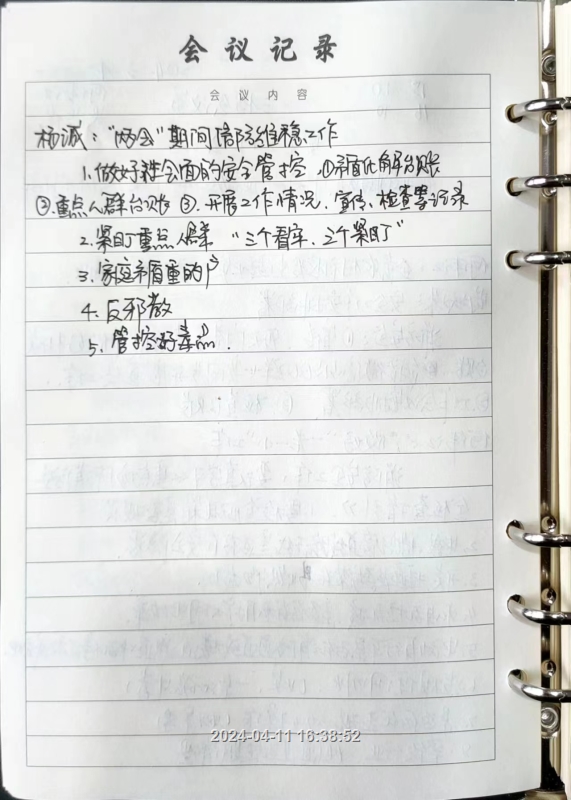 会议记录
会议内容
杨诚："两会"期间信访维稳工作
1.做好社会面的安全管控,①矛盾化解台账
②.重点人群台账 ③.开展工作情况,宣传、检查等记录
2.紧盯重点人群 "三个看牢、三个紧盯"
3、家庭矛盾重的户
4.反邪教
5、管控好毒品.
2024-04-11 16:38:52